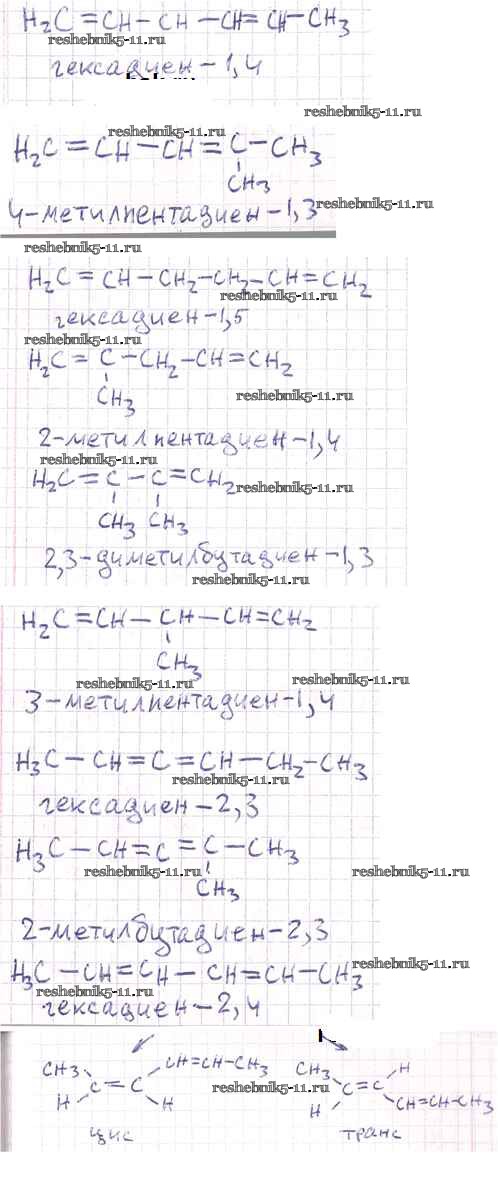 H₂C=CH–CH–CH=CH–CH₃
reshebnik5-11.ru
гексадиен-1,4
reshebnik5-11.ru
reshebnik5-11.ru
H₂C=CH–CH=C–CH₃
CH₃
4-метилпентадиен-1,3
reshebnik5-11.ru
reshebnik5-11.ru
H₂C=CH–CH₂–CH₂–CH=CH₂
reshebnik5-11.ru
гексадиен-1,5
reshebnik5-11.ru
H₂C=C–CH₂–CH=CH₂
CH₃
reshebnik5-11.ru
2-метилпентадиен-1,4
reshebnik5-11.ru
H₂C=C–C=CH₂
reshebnik5-11.ru
CH₃ CH₃
2,3-диметилбутадиен-1,3
reshebnik5-11.ru
H₂C=CH–CH–CH=CH₂
CH₃
reshebnik5-11.ru
reshebnik5-11.ru
3-метилпентадиен-1,4
H₃C–CH=C=CH–CH₂–CH₃
reshebnik5-11.ru
гексадиен-2,3
H₃C–CH=C=C–CH₃
reshebnik5-11.ru
reshebnik5-11.ru
CH₃
2-метилбутадиен-2,3
H₃C–CH=CH–CH=CH–CH₃
reshebnik5-11.ru
reshebnik5-11.ru
гексадиен-2,4
CH₃ CH=CH–CH₃ CH₃ H
C=C reshebnik5-11.ru C=C
H H H CH=CH–CH₃
цис транс